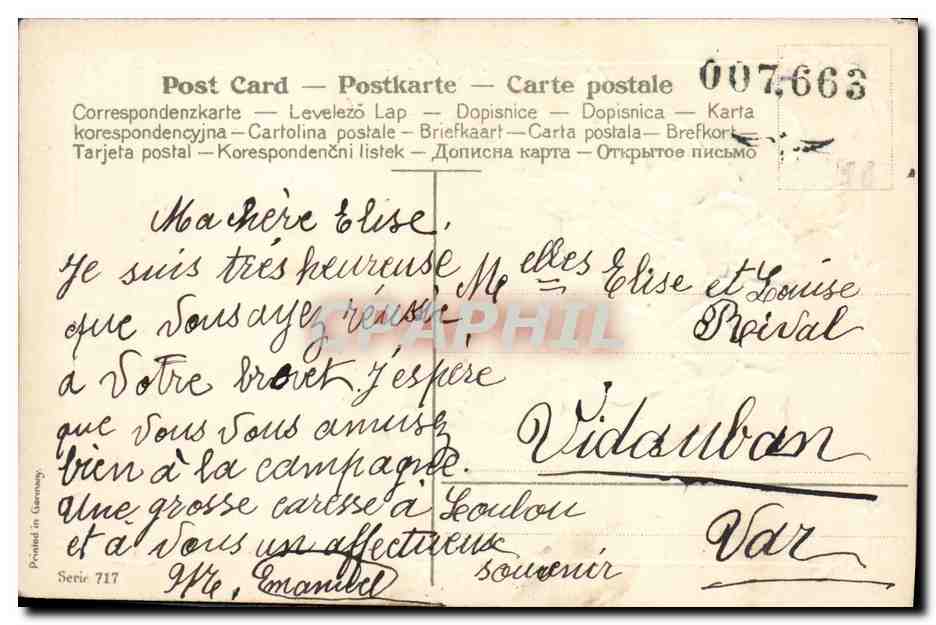 007,663
Post Card — Postkarte — Carte postale
Correspondenzkarte — Levelező Lap — Dopisnice — Dopisnica — Karta
korespondencyjna — Cartolina postale — Briefkaart — Carta postala — Brefkort —
Tarjeta postal — Korespondenčni listek — Дописна карта — Открытое письмо
Ma chère Elise.
Je suis très heureuse
que vous ayez réussi
à votre brevet. J'espère
que vous vous amusez
bien à la campagne.
Une grosse caresse à Loulou
et à vous un affectueux
souvenir
Emanuel
Melles Elise et Louise
Reival
Vidauban
Var
CPAPHIL
Printed in Germany.
Serie 717